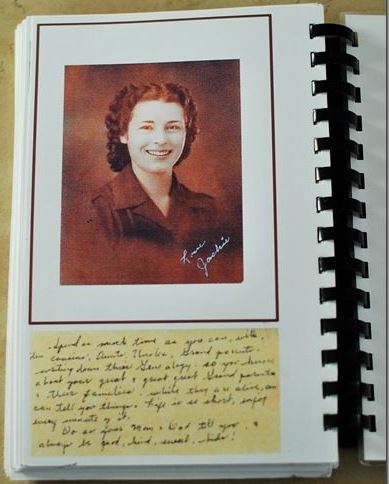 Love
Jackie
Spend as much time as you can, with
cousins, Aunts, Uncles, Grand parents
writing down their Genealogy. so you know
about your great & great great Grand parents
& their families, while they are alive, and
can tell you things. Life is so short, enjoy
every minute of it.
Do as your Mom & Dad tell you, &
always be good, kind, sweet, kids!